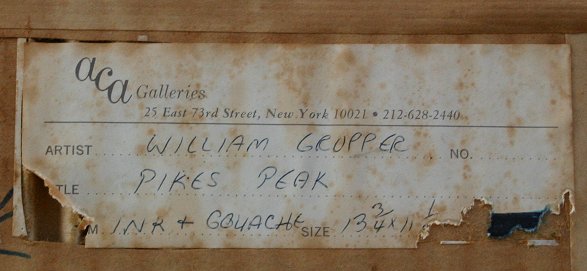 aca Galleries
25 East 73rd Street, New York 10021 • 212-628-2440
ARTIST WILLIAM GROPPER NO.
TLE PIKES PEAK
M INK + GOUACHE SIZE 13 3/4 x 11 1